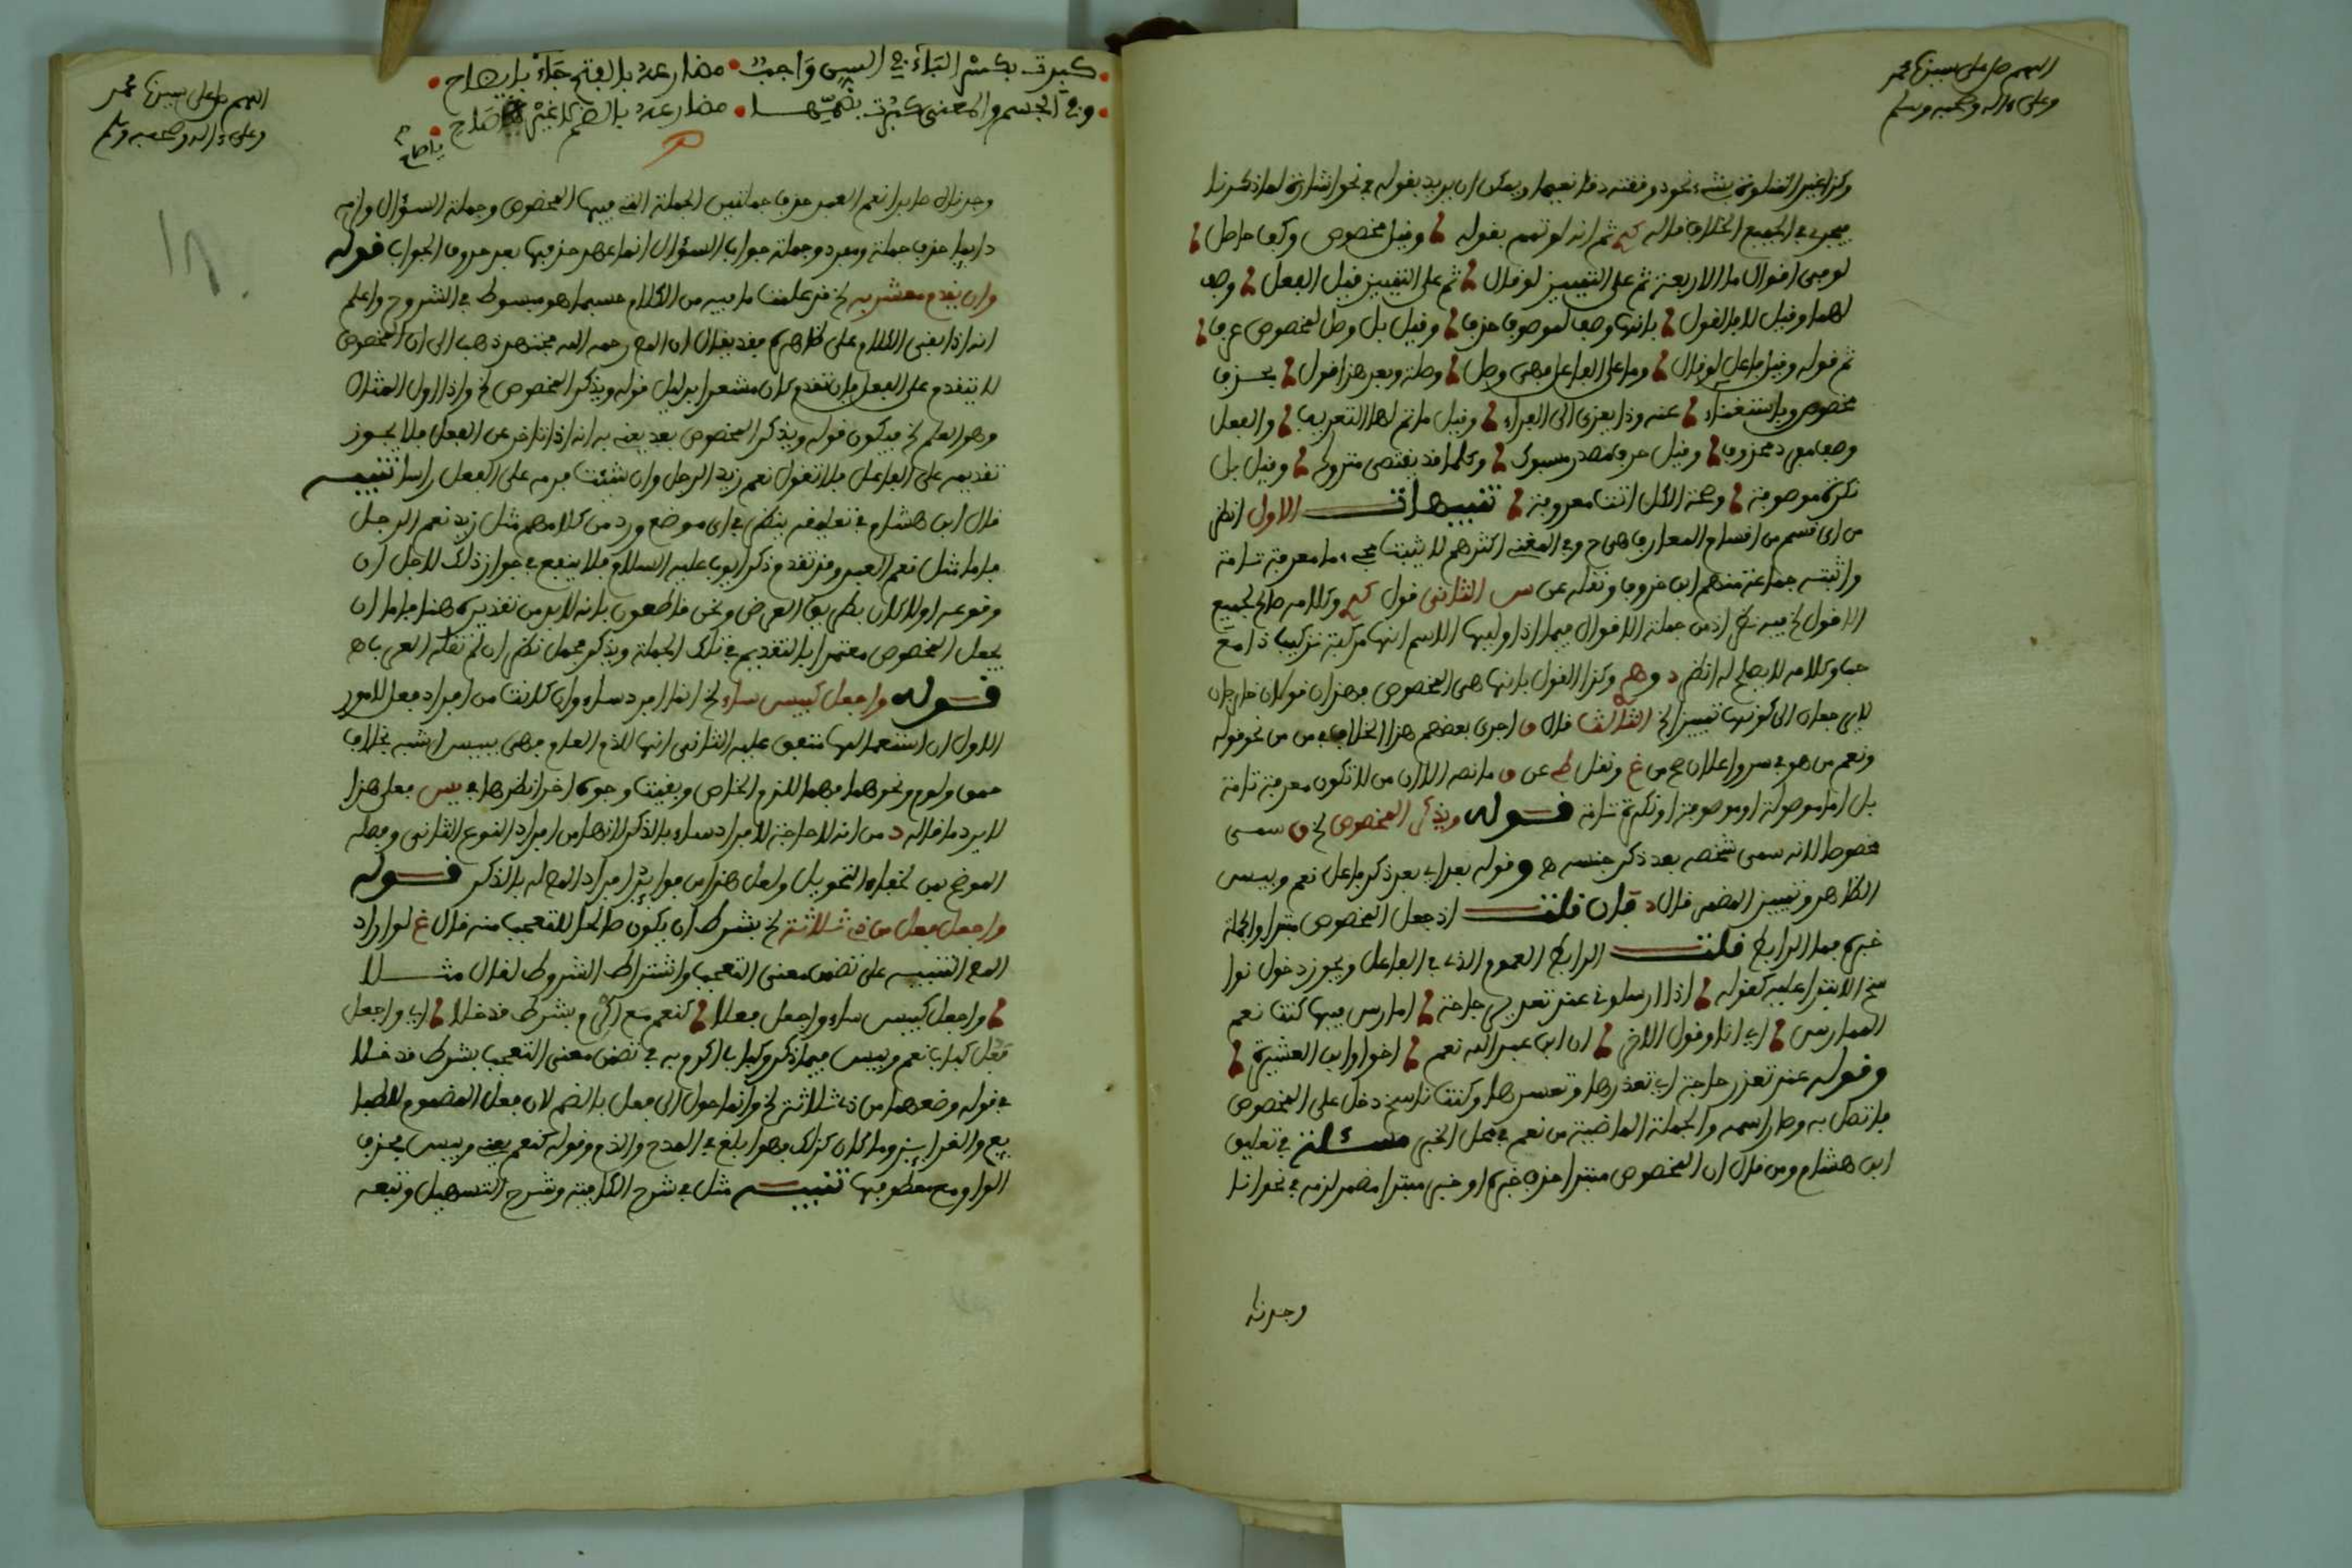 اللهم صل على سيدنا محمد
وعلى ءاله وصحبه وسلم
وكذا غير المتلوة بشيء نحو دققته دقا نعما ويمكن ان يريد بقوله في نحو اشارة لما ذكرنا
فيجري في الجميع الخلاف قاله ثم انه لو تمم بقوله وقيل مخصوص وكاف حاصل
لوفى اقوال ما الاربعة ثم على التمييز لو قال ثم على التمييز قيل الفعل وصف
لها وقيل لا بل القول بانها وصف لموصوف حذف وقيل بل وصل لمخصوص عرف
ثم قوله وقيل فاعل لو قال وما على الفاعل فهي وصل وصلة وبعد هذا قول بحذف
مخصوص وباستغناء عنه وذا يعزى الى الفراء وقيل ما تم لها التعريف والفعل
وصف مفرد محذوف وقيل حرف مصدر مسبوك وكلها قد يقتضى متروك وقيل بل
نكرة موصوفة وصفة الكل اتت معروفة تنبيهات الاول انظر
من اي قسم من اقسام المعارف هي ح وفي المغني اكثرهم لا يثبت مجيء ما معرفة تامة
واثبته جماعة منهم ابن خروف ونقله عن س الثاني قول وكلامه صالح لجميع
الاقوال الخ فيه نظر اذ من جملة الاقوال فيما اذا وليها الاسم انها مركبة تركيب ذا مع
حب وكلامه لا يصلح له انظر د وهم وكذا القول بانها هي المخصوص فهذان قولان خارجان
لا يرجعان الى كونها تمييز الخ الثالث قال ق اجرى بعضهم هذا الخلاف في من من نحو قوله
ونعم من هو في سر واعلان ح من غ ونقل عن ق ما نصه الا ان من لا تكون معرفة تامة
بل اما موصولة او موصوفة او نكرة تامة قوله ويذكر المخصوص الخ ق سمي
مخصوصا لانه سمى شخصه بعد ذكر جنسه ه وقوله بعد اي بعد ذكر فاعل نعم وبيس
الظاهر وتمييز المضمر قال د فان قلت اذ جعل المخصوص مبتدا والجملة
خبره فما الرابط قلت الرابط العموم الذي في الفاعل ويجوز دخول نوا
سخ الابتدا عليه كقوله اذا ارسلوني عند تعذير حاجة امارس فيها كنت نعم
الممارس اي انا وقول الاخر ان ابن عبد الله نعم اخو الندا وابن العشيرة
وقوله عند تعذر حاجة اي تعذرها وتعسرها وكنت ناسخ دخل على المخصوص
فاتصل به وصار اسمه والجملة الماضية من نعم في محل الخبر مسئلة في تعليق
ابن هشام ومن قال ان المخصوص مبتدا حذف خبره او خبر مبتدا مضمر لزمه في نحو انا
وجدناه
اللهم صل على سيدنا محمد
وعلى ءاله وصحبه وسلم
كبرت بكسر الباء في السن واجب مضارعه بالفتح جاء بايضاح
وفي الجسم والمعنى كبرت بضمها مضارعه بالضم لا غير صاح
ياصاح
وجدناه صابرا نعم العبد حذف جملتين الجملة التي فيها المخصوص وجملة السؤال وانه
دائما حذف جملة ومفرد وجملة جواب السؤال انما عهد حذفها بعد حروف الجواب قوله
وان يقدم مشعر به الخ قد علمت ما فيه من الكلام حسبما هو مبسوط في الشروح واعلم
انه اذا بقي الكلام على ظاهره فقد يقال ان المص رحمه الله مختصر ذهب الى ان المخصوص
لا يتقدم على الفعل فان تقدم كان مشعرا بدليل قوله ويذكر المخصوص الخ واذا اول المثال
وهو العلم الخ فيكون قوله ويذكر المخصوص بعد يعني به انه اذا تاخر عن الفعل فلا يجوز
تقديمه على الفاعل فلا تقول نعم زيد الرجل وان شئت قدمه على الفعل راسا تنبيه
قال ابن هشام في تعليقه ينظر في اي موضع ورد من كلامهم مثل زيد نعم الرجل
فاما مثل نعم العبد وقد تقدم ذكر ايوب عليه السلام فلا ينفع في جواز ذلك لاجل ان
وقوعه اولا كان بطريق العرض ونحن قاطعون بانه لابد من تقديره هنا فاما ان
يجعل المخصوص معتمرا بالتقديم في تلك الجملة ويذكر مجمل نظر ان لم تقله العرب اه
قوله واجعل كبيس ساء الخ انما افرد ساء وان كانت من افراد فعل لامور
الاول ان استعمالها متفق عليه الثاني انها للذم العام فهي ببيس اشبه بخلاف
حمق ولؤم ونحوهما فهما للذم الخاص وبقيت وجوه اخر انظرها في يس فعلى هذا
لا يرد ما قاله د من انه لا حاجة لافراد ساء بالذكر لانها من افراد النوع الثاني وفصله
الموضح بين لخفاء التحويل ولعل هذا من فوائد افراد المص له بالذكر قوله
واجعل فعل من ذي ثلاثة الخ بشرط ان يكون صالحا للتعجب منه قال غ لو اراد
المص التنبيه على تضمن معنى التعجب واشتراط الشروط لقال مثلا
واجعل كبيس ساء واجعل فعلا كنعم مع اكرم بشرط قد خلا اي واجعل
فعل كباب نعم وبيس فيما ذكر وكباب اكرم به في تضمن معنى التعجب بشرط قد خلا
في قوله وصغهما من ذي ثلاثة الخ وانما حول الى فعل بالضم لان فعل المضموم للطبا
يع والغرايز وما كان كذلك فهو ابلغ في المدح والذم وقوله كنعم يعني وبيس بحذف
الواو ومعطوفها تنبيه مثل في شرح الكافية وشرح التسهيل وتبعه